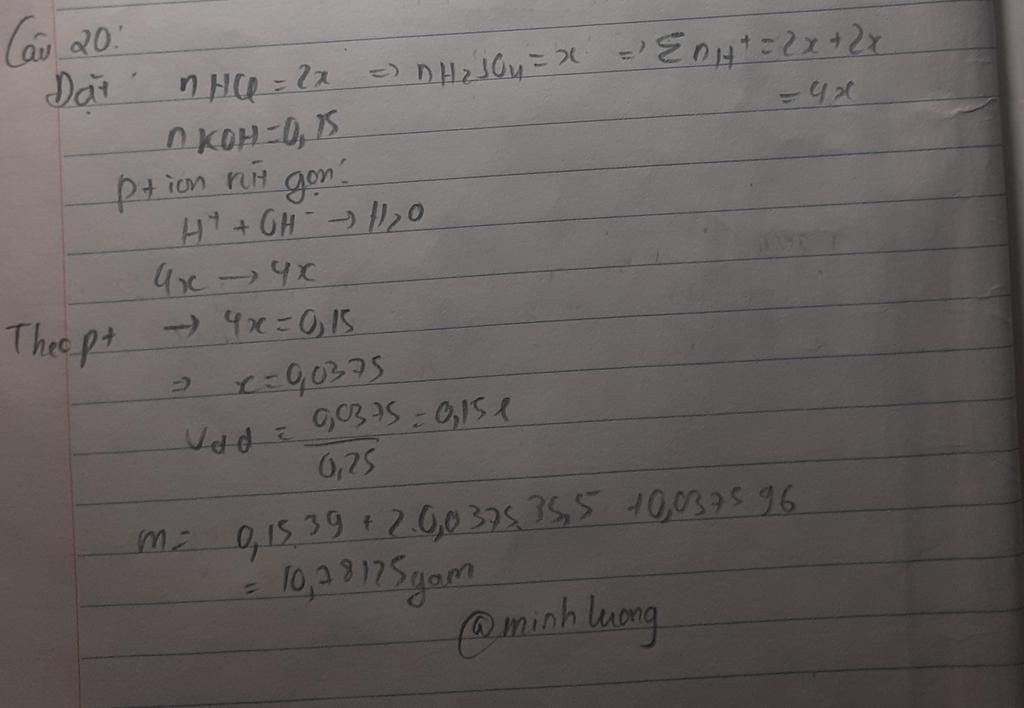 Câu 20:
Đặt nHCl = 2x => nH2SO4 = x => Σ nH+ = 2x + 2x
= 4x
nKOH = 0,15
pt ion rút gọn:
H+ + OH- → H2O
4x → 4x
Theo pt → 4x = 0,15
=> x = 0,0375
Vdd = 0,0375/0,25 = 0,15l
m = 0,15.39 + 2.0,0375.35,5 + 0,0375 96
= 10,28175 gam
@minh luong